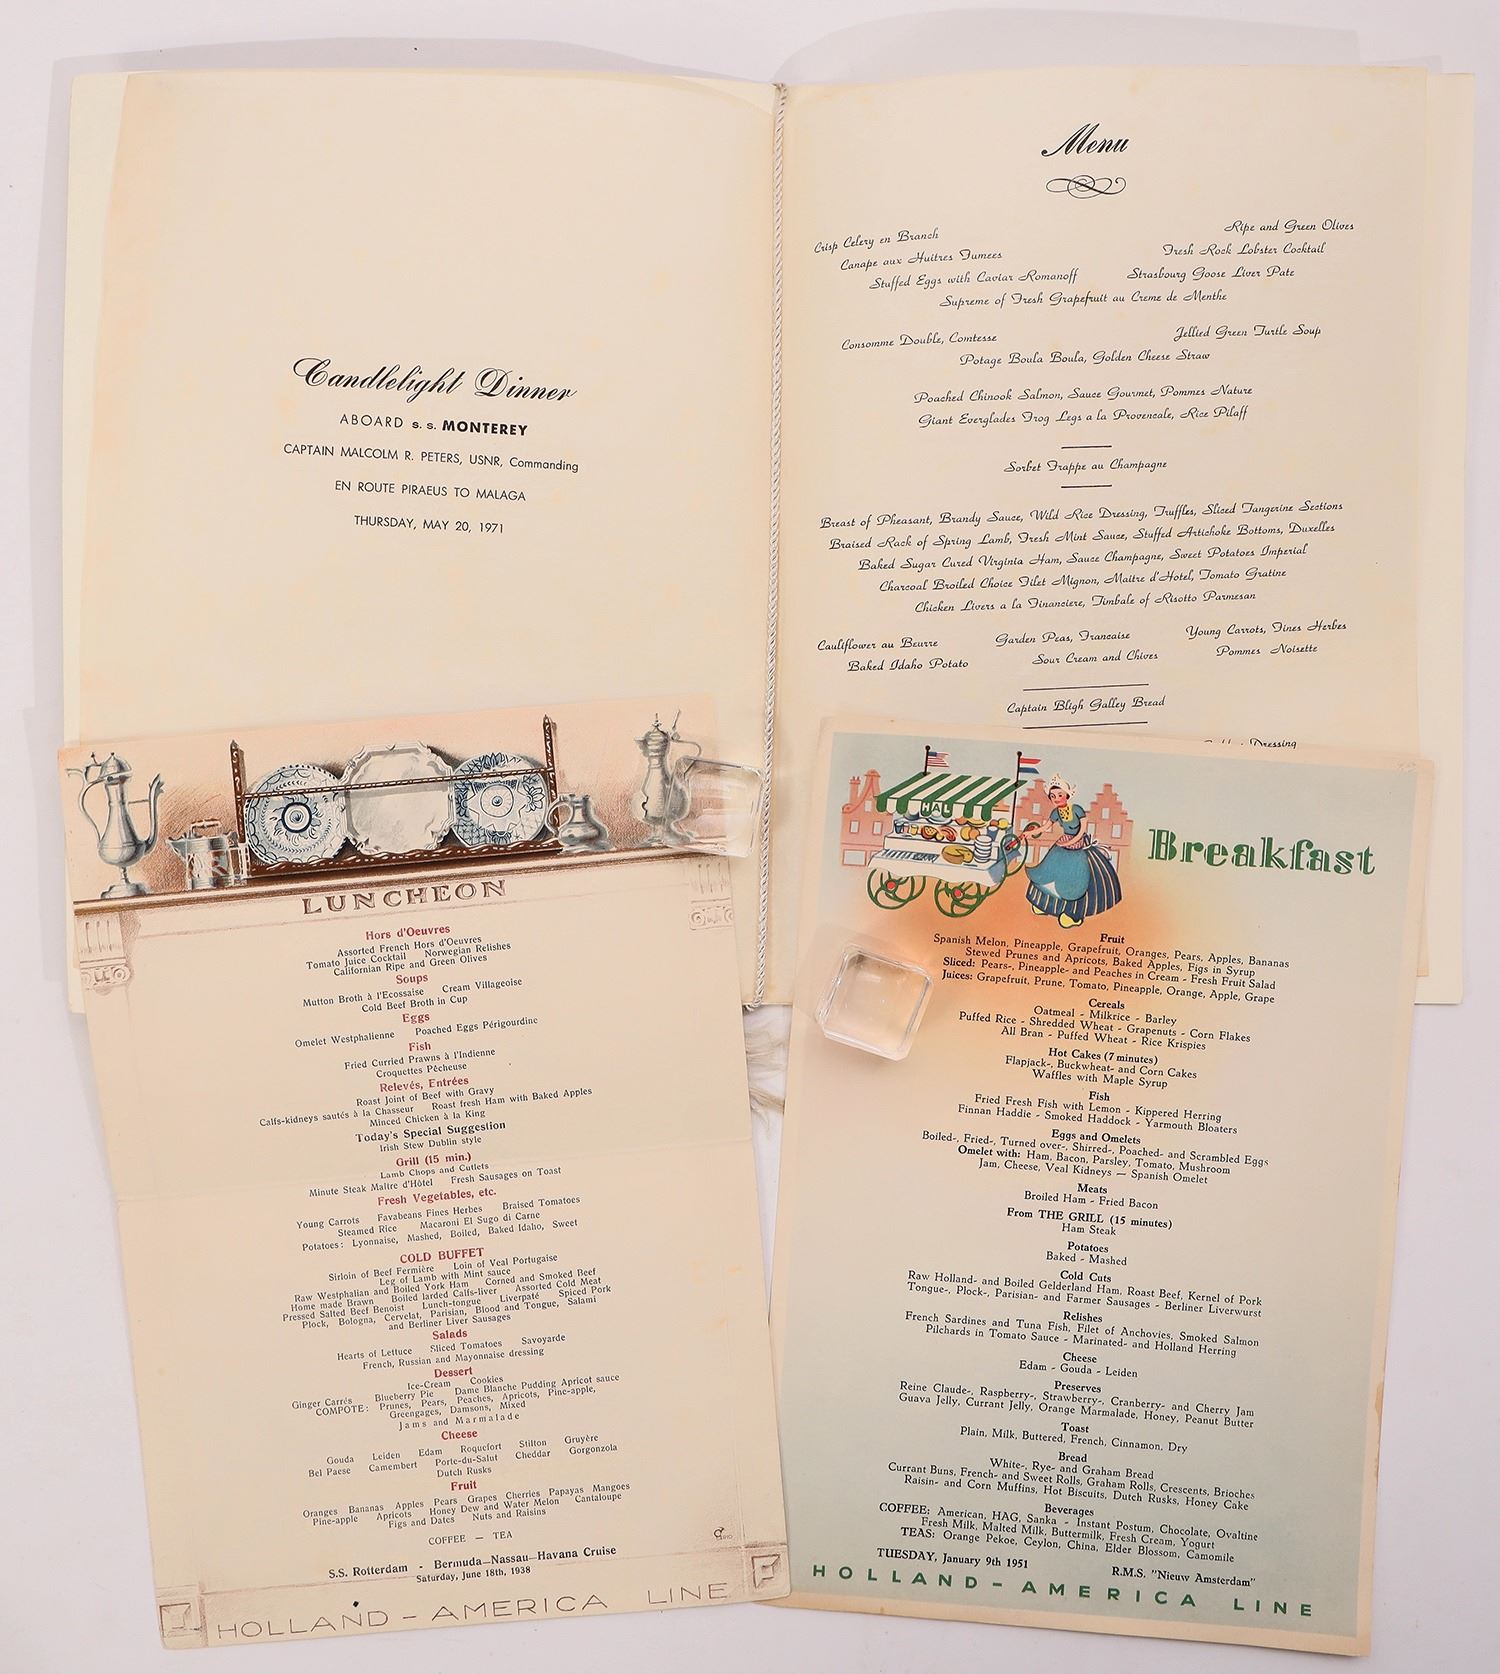 Candlelight Dinner
ABOARD s. s. MONTEREY
CAPTAIN MALCOLM R. PETERS, USNR, Commanding
EN ROUTE PIRAEUS TO MALAGA
THURSDAY, MAY 20, 1971
Menu
Crisp Celery en Branch Ripe and Green Olives
Canape aux Huitres Fumees Fresh Rock Lobster Cocktail
Stuffed Eggs with Caviar Romanoff Strasbourg Goose Liver Pate
Supreme of Fresh Grapefruit au Creme de Menthe
Consomme Double, Comtesse Jellied Green Turtle Soup
Potage Boula Boula, Golden Cheese Straw
Poached Chinook Salmon, Sauce Gourmet, Pommes Nature
Giant Everglades Frog Legs a la Provencale, Rice Pilaff
Sorbet Frappe au Champagne
Breast of Pheasant, Brandy Sauce, Wild Rice Dressing, Truffles, Sliced Tangerine Sections
Braised Rack of Spring Lamb, Fresh Mint Sauce, Stuffed Artichoke Bottoms, Duxelles
Baked Sugar Cured Virginia Ham, Sauce Champagne, Sweet Potatoes Imperial
Charcoal Broiled Choice Filet Mignon, Maitre d'Hotel, Tomato Gratine
Chicken Livers a la Financiere, Timbale of Risotto Parmesan
Cauliflower au Beurre Garden Peas, Francaise Young Carrots, Fines Herbes
Baked Idaho Potato Sour Cream and Chives Pommes Noisette
Captain Bligh Galley Bread
Dressing
LUNCHEON
Hors d'Oeuvres
Assorted French Hors d'Oeuvres
Tomato Juice Cocktail Norwegian Relishes
Californian Ripe and Green Olives
Soups
Mutton Broth à l'Ecossaise Cream Villageoise
Cold Beef Broth in Cup
Eggs
Omelet Westphalienne Poached Eggs Périgourdine
Fish
Fried Curried Prawns à l'Indienne
Croquettes Pêcheuse
Relevés, Entrées
Roast Joint of Beef with Gravy
Calfs-kidneys sautés à la Chasseur Roast fresh Ham with Baked Apples
Minced Chicken à la King
Today's Special Suggestion
Irish Stew Dublin style
Grill (15 min.)
Lamb Chops and Cutlets
Minute Steak Maître d'Hôtel Fresh Sausages on Toast
Fresh Vegetables, etc.
Young Carrots Favabeans Fines Herbes Braised Tomatoes
Steamed Rice Macaroni El Sugo di Carne
Potatoes: Lyonnaise, Mashed, Boiled, Baked Idaho, Sweet
COLD BUFFET
Sirloin of Beef Fermière Loin of Veal Portugaise
Leg of Lamb with Mint sauce
Raw Westphalian and Boiled York Ham Corned and Smoked Beef
Home made Brawn Boiled larded Calfs-liver Assorted Cold Meat
Pressed Salted Beef Benoist Lunch-tongue Liverpaté Spiced Pork
Plock, Bologna, Cervelat, Parisian, Blood and Tongue, Salami
and Berliner Liver Sausages
Salads
Hearts of Lettuce Sliced Tomatoes Savoyarde
French, Russian and Mayonnaise dressing
Dessert
Ice-Cream Cookies
Ginger Carrés Blueberry Pie Dame Blanche Pudding Apricot sauce
COMPOTE: Prunes, Pears, Peaches, Apricots, Pine-apple,
Greengages, Damsons, Mixed
Jams and Marmalade
Cheese
Gouda Leiden Edam Roquefort Stilton Gruyère
Bel Paese Camembert Porte-du-Salut Cheddar Gorgonzola
Dutch Rusks
Fruit
Oranges Bananas Apples Pears Grapes Cherries Papayas Mangoes
Pine-apple Apricots Honey Dew and Water Melon Cantaloupe
Figs and Dates Nuts and Raisins
COFFEE — TEA
S.S. Rotterdam - Bermuda—Nassau—Havana Cruise
Saturday, June 18th, 1938
HOLLAND - AMERICA LINE
HAL
Breakfast
Fruit
Spanish Melon, Pineapple, Grapefruit, Oranges, Pears, Apples, Bananas
Stewed Prunes and Apricots, Baked Apples, Figs in Syrup
Sliced: Pears-, Pineapple- and Peaches in Cream - Fresh Fruit Salad
Juices: Grapefruit, Prune, Tomato, Pineapple, Orange, Apple, Grape
Cereals
Oatmeal - Milkrice - Barley
Puffed Rice - Shredded Wheat - Grapenuts - Corn Flakes
All Bran - Puffed Wheat - Rice Krispies
Hot Cakes (7 minutes)
Flapjack-, Buckwheat- and Corn Cakes
Waffles with Maple Syrup
Fish
Fried Fresh Fish with Lemon - Kippered Herring
Finnan Haddie - Smoked Haddock - Yarmouth Bloaters
Eggs and Omelets
Boiled-, Fried-, Turned over-, Shirred-, Poached- and Scrambled Eggs
Omelet with: Ham, Bacon, Parsley, Tomato, Mushroom
Jam, Cheese, Veal Kidneys — Spanish Omelet
Meats
Broiled Ham - Fried Bacon
From THE GRILL (15 minutes)
Ham Steak
Potatoes
Baked - Mashed
Cold Cuts
Raw Holland- and Boiled Gelderland Ham, Roast Beef, Kernel of Pork
Tongue-, Plock-, Parisian- and Farmer Sausages - Berliner Liverwurst
Relishes
French Sardines and Tuna Fish, Filet of Anchovies, Smoked Salmon
Pilchards in Tomato Sauce - Marinated- and Holland Herring
Cheese
Edam - Gouda - Leiden
Preserves
Reine Claude-, Raspberry-, Strawberry-, Cranberry- and Cherry Jam
Guava Jelly, Currant Jelly, Orange Marmalade, Honey, Peanut Butter
Toast
Plain, Milk, Buttered, French, Cinnamon, Dry
Bread
White-, Rye- and Graham Bread
Currant Buns, French- and Sweet Rolls, Graham Rolls, Crescents, Brioches
Raisin- and Corn Muffins, Hot Biscuits, Dutch Rusks, Honey Cake
Beverages
COFFEE: American, HAG, Sanka - Instant Postum, Chocolate, Ovaltine
Fresh Milk, Malted Milk, Buttermilk, Fresh Cream, Yogurt
TEAS: Orange Pekoe, Ceylon, China, Elder Blossom, Camomile
TUESDAY, January 9th 1951 R.M.S. "Nieuw Amsterdam"
HOLLAND - AMERICA LINE